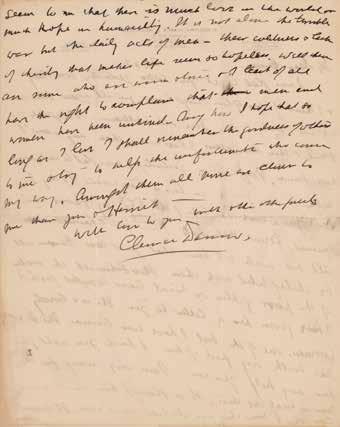 seem to me that there is much love in the world or
much hope in humanity. It is not alone the terrible
war but the daily acts of men – their coldness & lack
of charity that makes life seem so hopeless. Well there
are some who are worse, I least of all
have the right to complain that men and
women have been unkind. Any how I hope that so
long as I live I shall remember the goodness of others
to me & try to help the unfortunate who come
my way. Amongst them all none are closer to
me than you & Harriet –
With love to you with all the
Clarence Darrow,